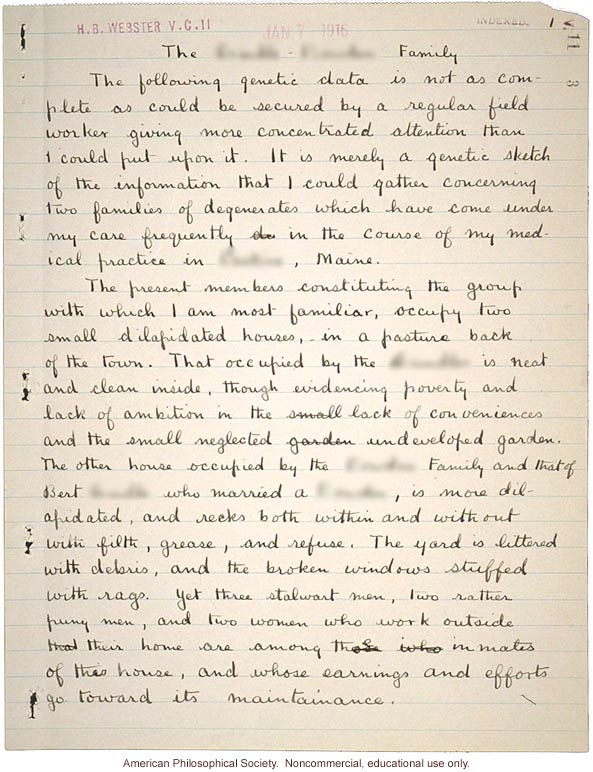 H.B. WEBSTER V.C.11
JAN 7 1916
INDEXED.
1
V
11
3
The - Family
The following genetic data is not as com-
plete as could be secured by a regular field
worker giving more concentrated attention than
I could put upon it. It is merely a genetic sketch
of the information that I could gather concerning
two families of degenerates which have come under
my care frequently do in the course of my med-
ical practice in , Maine.
The present members constituting the group
with which I am most familiar, occupy two
small dilapidated houses, in a pasture back
of the town. That occupied by the is neat
and clean inside, though evidencing poverty and
lack of ambition in the small lack of conveniences
and the small neglected garden undeveloped garden.
The other house occupied by the Family and that of
Bert who married a , is more dil-
apidated, and reeks both within and without
with filth, grease, and refuse. The yard is littered
with debris, and the broken windows stuffed
with rags. Yet three stalwart men, two rather
puny men, and two women who work outside
that their home are among those who inmates
of this house, and whose earnings and efforts
go toward its maintainance.
American Philosophical Society. Noncommercial, educational use only.